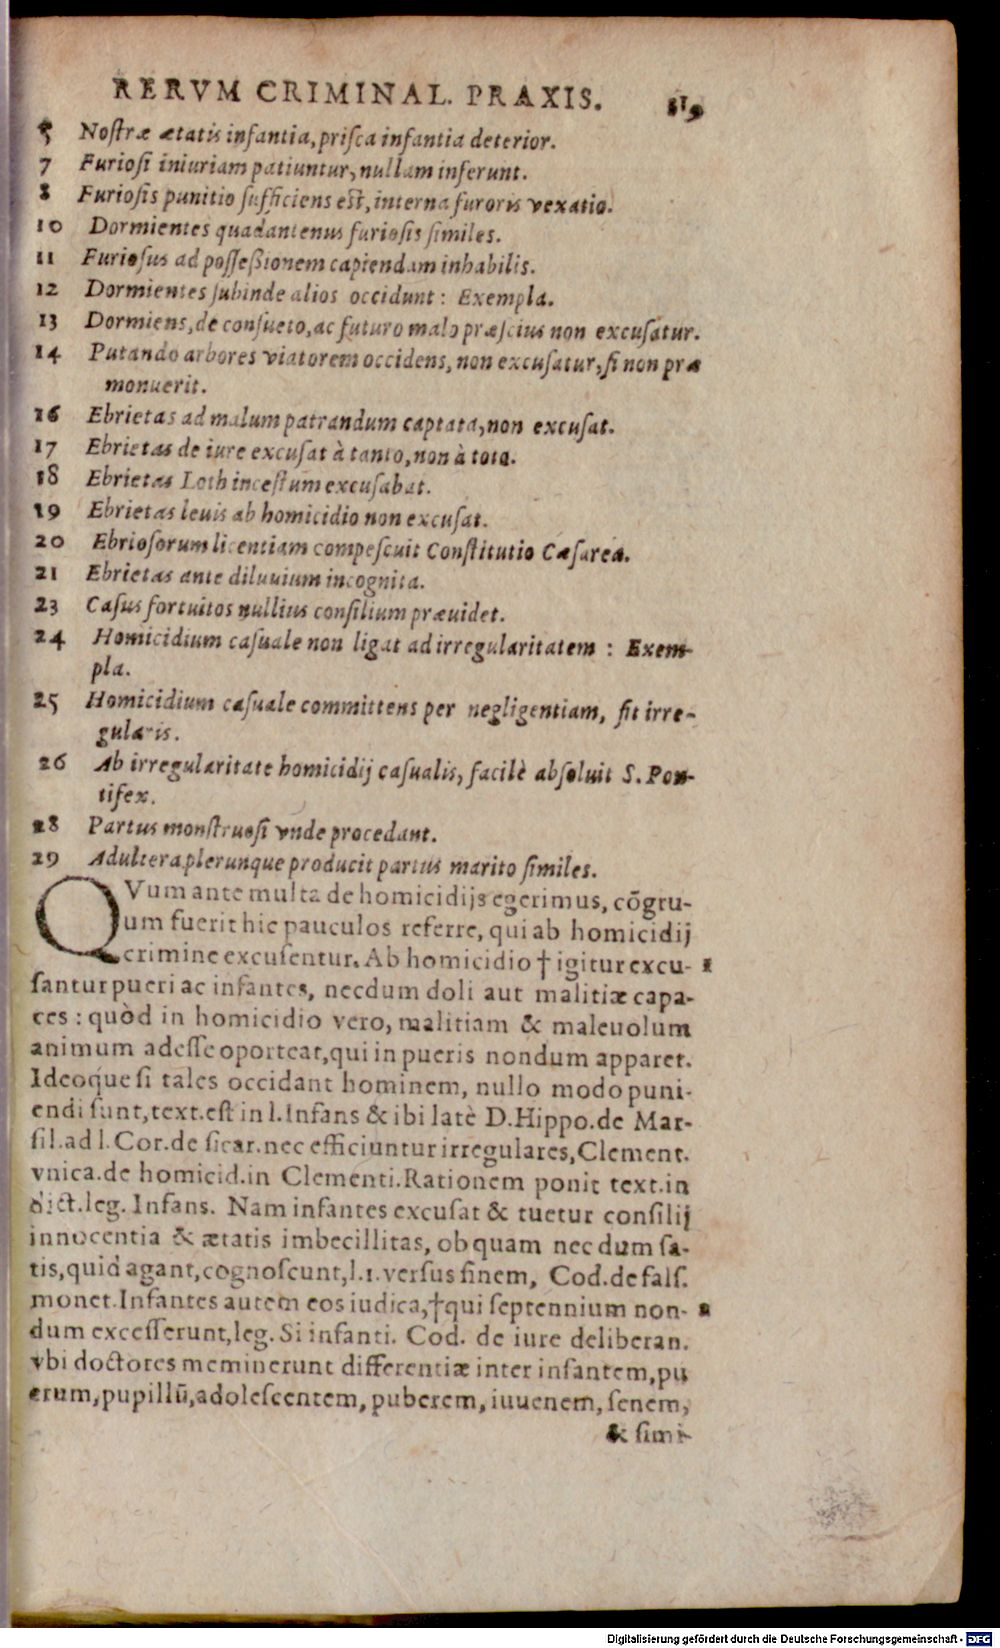 RERVM CRIMINAL. PRAXIS. 819
5 Nostræ ætatis infantia, prisca infantia deterior.
7 Furiosi iniuriam patiuntur, nullam inferunt.
8 Furiosis punitio sufficiens est, interna furoris vexatio.
10 Dormientes quadantenus furiosis similes.
11 Furiosus ad possessionem capiendam inhabilis.
12 Dormientes subinde alios occidunt: Exempla.
13 Dormiens, de consueto, ac futuro malo præscius non excusatur.
14 Putando arbores viatorem occidens, non excusatur, si non præ
monuerit.
16 Ebrietas ad malum patrandum captata, non excusat.
17 Ebrietas de iure excusat à tanto, non à toto.
18 Ebrietas Loth incestum excusabat.
19 Ebrietas leuis ab homicidio non excusat.
20 Ebriosorum licentiam compescuit Constitutio Cæsarea.
21 Ebrietas ante diluuium incognita.
23 Casus fortuitos nullius consilium præuidet.
24 Homicidium casuale non ligat ad irregularitatem : Exem-
pla.
25 Homicidium casuale committens per negligentiam, fit irre-
gularis.
26 Ab irregularitate homicidij casualis, facilè absoluit S. Pon-
tifex.
28 Partus monstruosi vnde procedant.
29 Adultera plerunque producit partus marito similes.
QVum ante multa de homicidijs egerimus, cõgru-
um fuerit hic pauculos referre, qui ab homicidij
crimine excusentur. Ab homicidio † igitur excu- 1
santur pueri ac infantes, necdum doli aut malitiæ capa-
ces : quòd in homicidio vero, malitiam & maleuolum
animum adesse oporteat, qui in pueris nondum apparet.
Ideoque si tales occidant hominem, nullo modo puni-
endi sunt, text. est in l. Infans & ibi latè D. Hippo. de Mar-
sil. ad l. Cor. de sicar. nec efficiuntur irregulares, Clement.
vnica. de homicid. in Clementi. Rationem ponit text. in
dict. leg. Infans. Nam infantes excusat & tuetur consilij
innocentia & ætatis imbecillitas, ob quam necdum sa-
tis, quid agant, cognoscunt, l. 1. versus finem, Cod. de fals.
monet. Infantes autem eos iudica, † qui septennium non- 2
dum excesserunt, leg. Si infanti. Cod. de iure deliberan.
vbi doctores meminerunt differentiæ inter infantem, pu
erum, pupillũ, adolescentem, puberem, iuuenem, senem,
& simi-
Digitalisierung gefördert durch die Deutsche Forschungsgemeinschaft - DFG